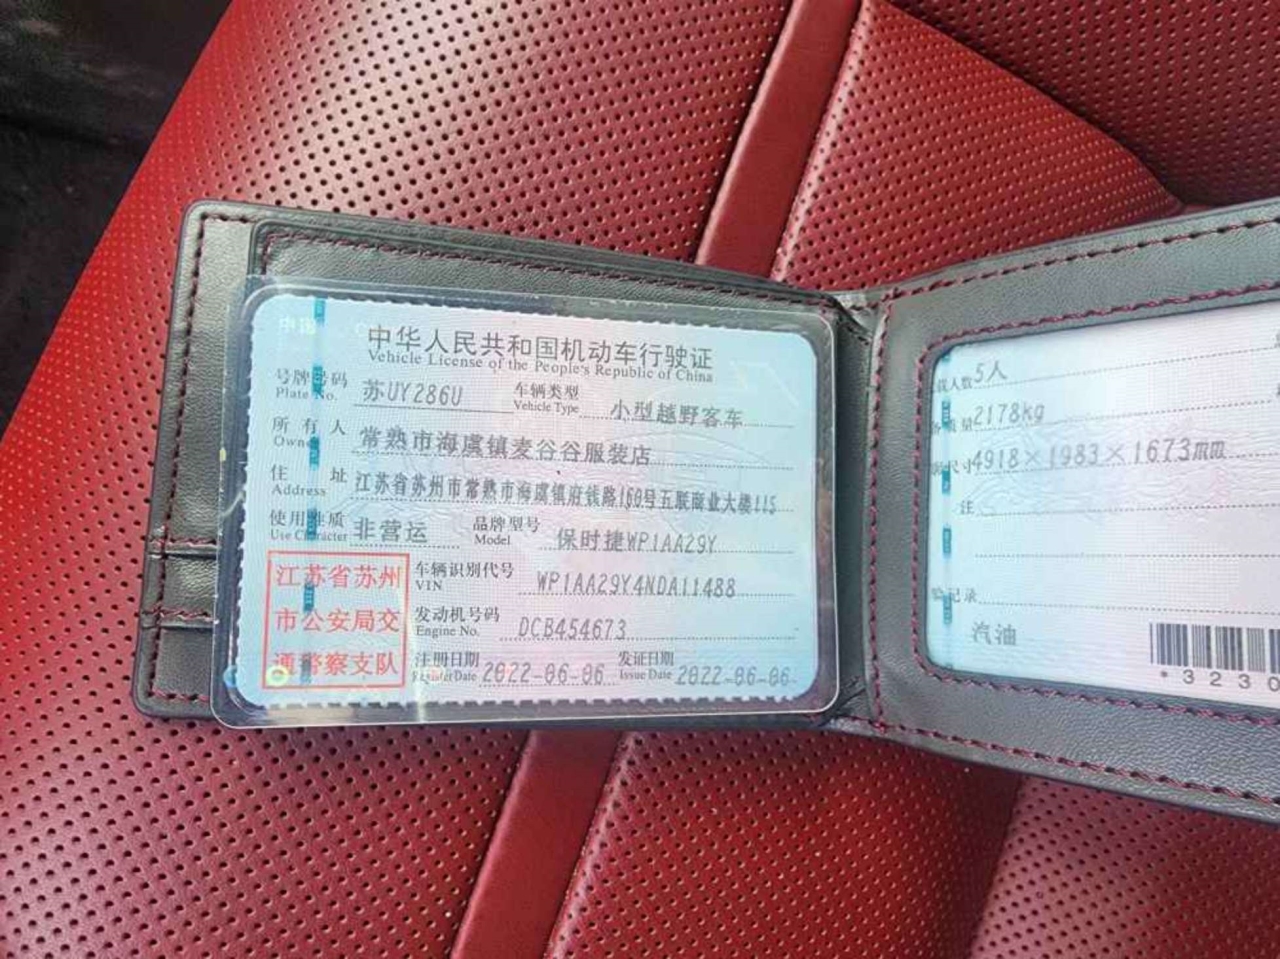 中国
中华人民共和国机动车行驶证
Vehicle License of the People's Republic of China
号牌号码 苏UY286U 车辆类型 小型越野客车
Plate No. Vehicle Type
所有人 常熟市海虞镇麦谷谷服装店
Owner
住址 江苏省苏州市常熟市海虞镇府钱路160号五联商业大楼115
Address
使用性质 非营运 品牌型号 保时捷WP1AA29Y
Use Character Model
江苏省苏州
市公安局交
通警察支队
车辆识别代号 WP1AA29Y4NDA11488
VIN
发动机号码 DCB454673
Engine No.
注册日期 2022-06-06 发证日期 2022-06-06
Register Date Issue Date
载人数 5人
质量 2178kg
尺寸 4918×1983×1673mm
注
记录
汽油
*3230